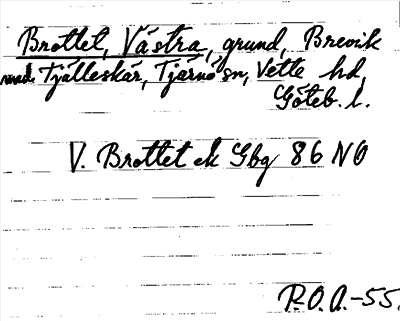 Brottet, Västra, grund, Brevik
med Tjälleskär, Tjärnö sn, Vette hd,
Göteb. l.
V. Brottet ek Gbg 86 NO
P.O.A.-55.